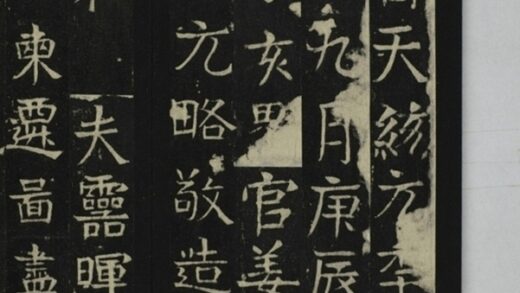 天統元年
九月庚辰
亥男官姜
元略敬造
夫靈暉
東遷啚盡